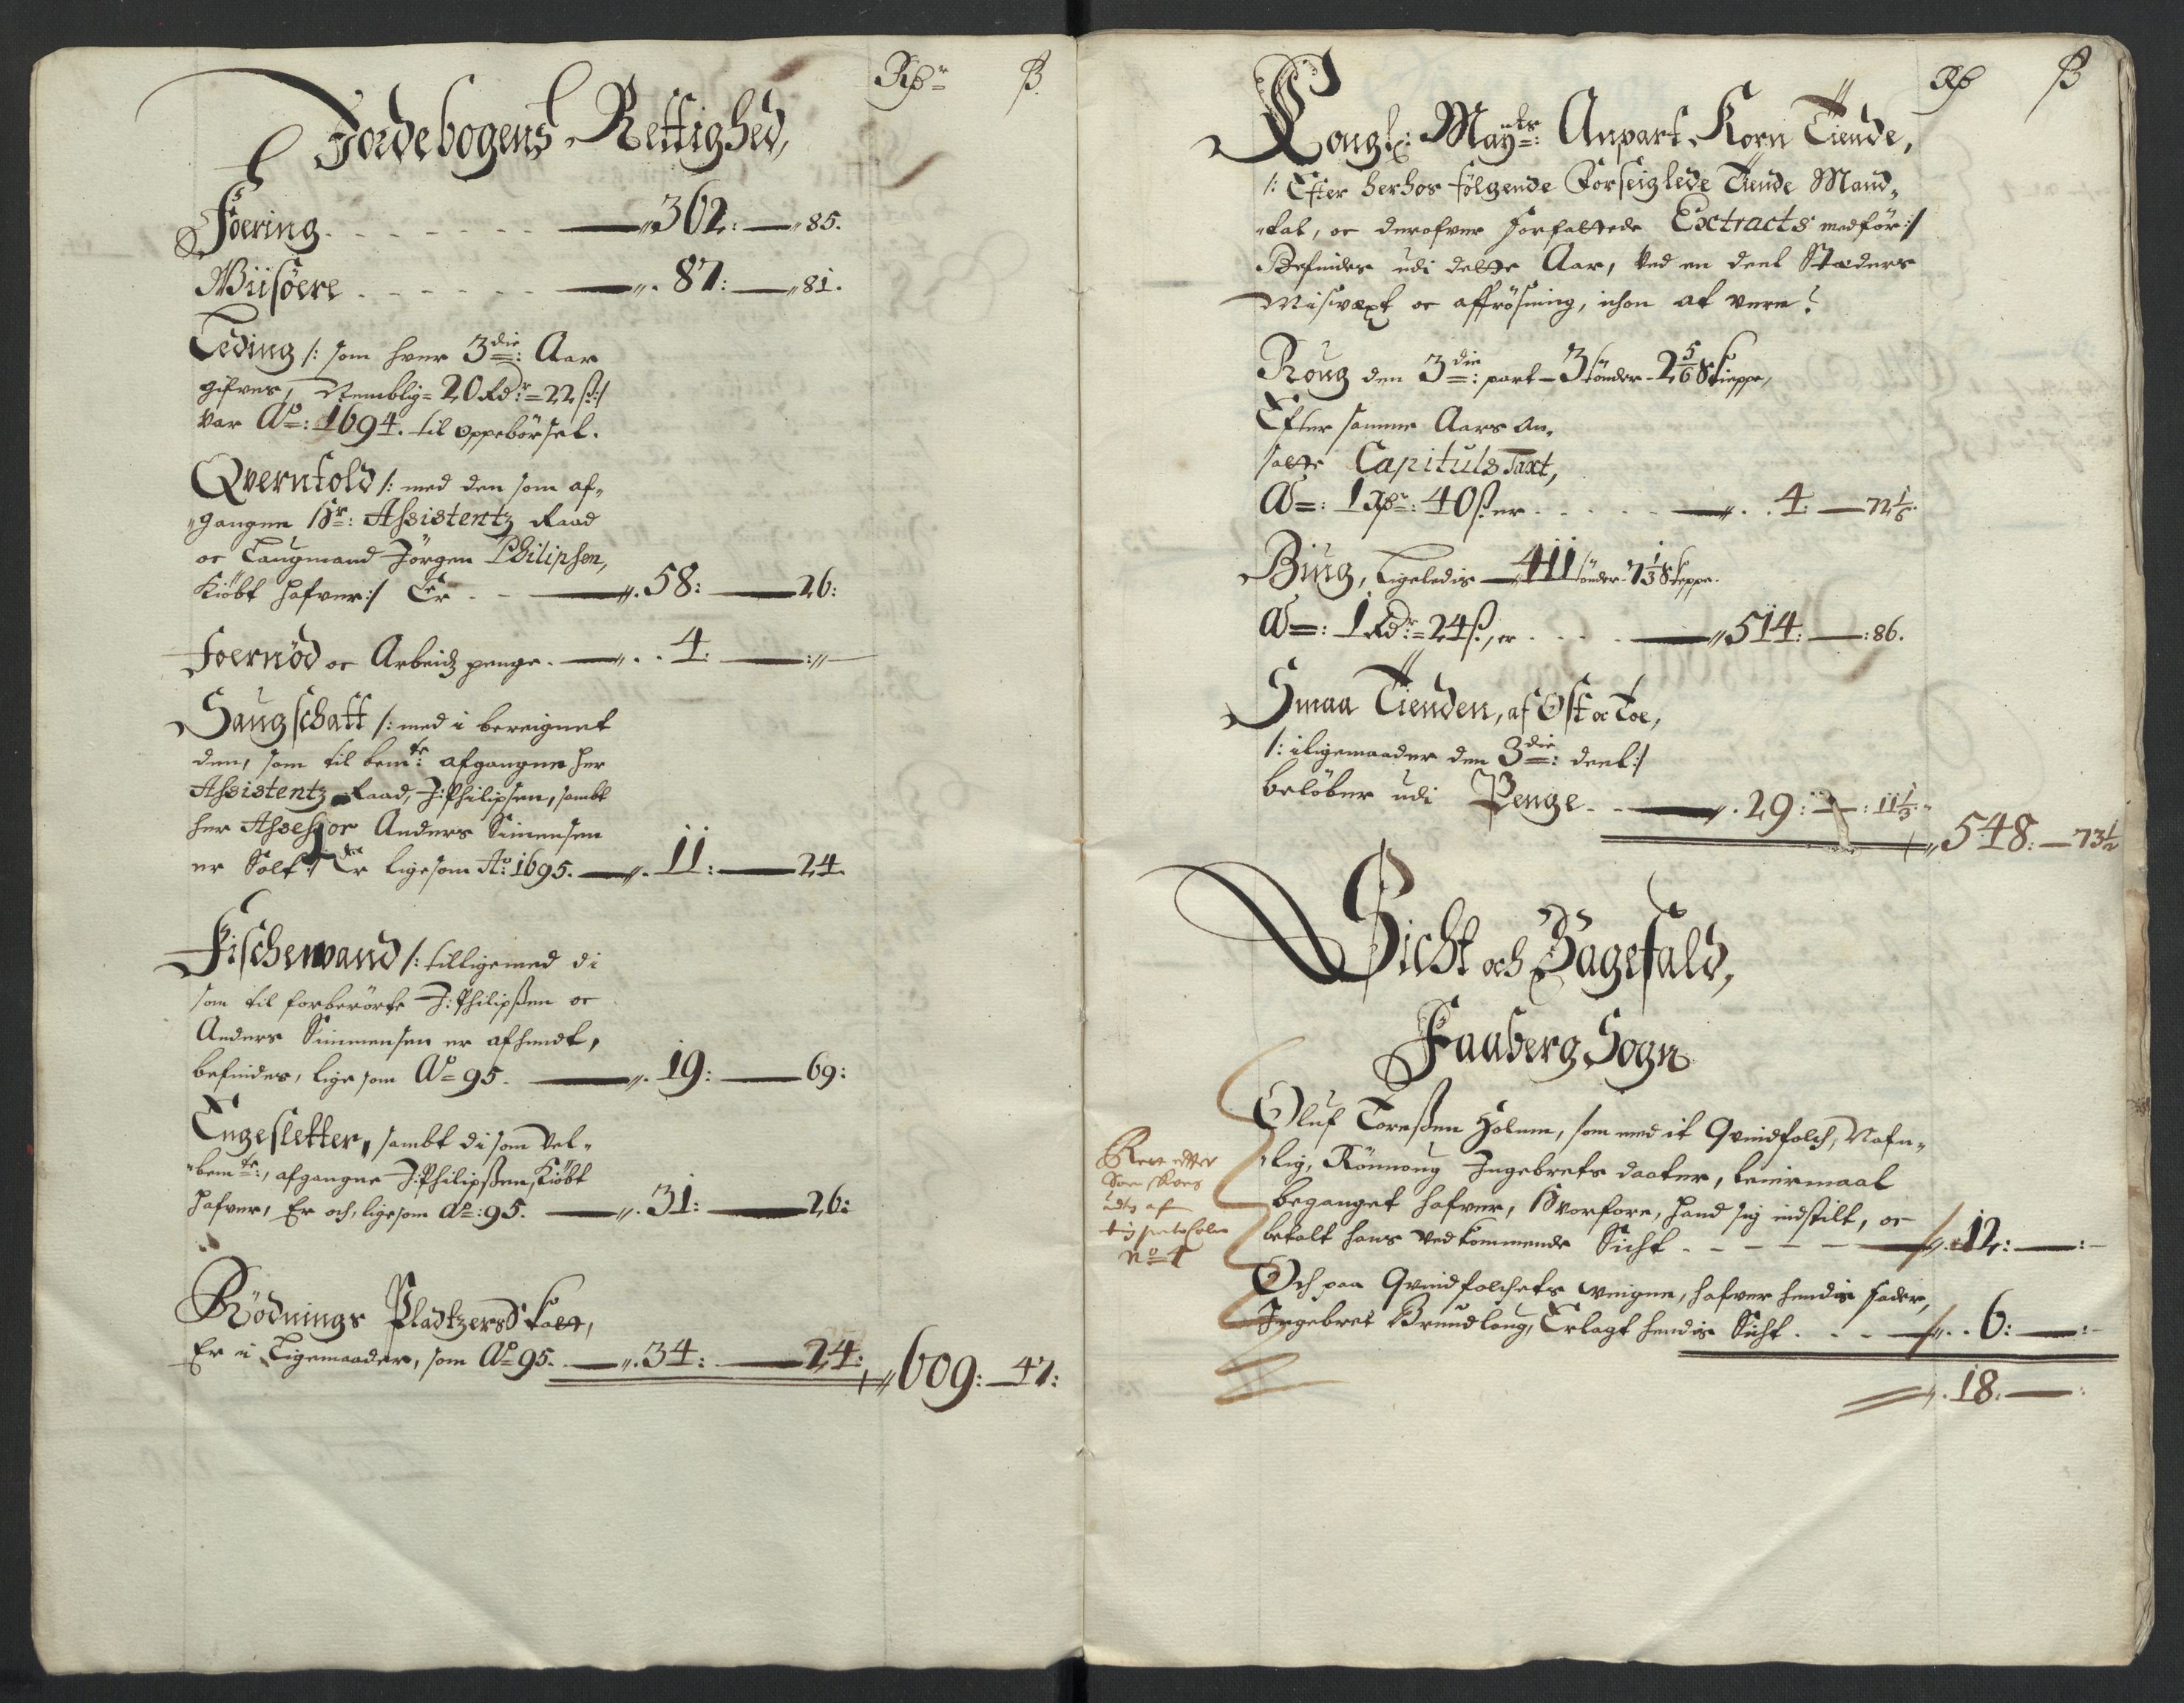 Rdr ß
Jordebogens Rettighed,
Foering. - - - 362: - 85.
Wiisöere - - - 87: - 81.
Leding /: som hver 3die: Aar
gifves, Nemblig= 20 Rdr= 22 ß:/
var Ao: 1694. til oppebörsel.
Qverntold /: med den som af=
gangne Hr: Assistentz Raad
oc Laugmand Jörgen Philipsen,
Kiöbt hafver:/ Er - 58: - 26:
Foernöd oc Arbeidz penge. - 4: - :
Saugschatt /: med i bereignet
den, som til bemte: afgangne her
Assistentz Raad, J: Philipsen, sambt
her Assessor Anders Simensen
er Solt:/ Er ligesom Ao: 1695. - 11: - 24.
Fischevand /: tilligemed di
som til forberörte J: Philipßen oc
Anders Simmensen er afhendt,
befindes, lige som Ao 95. - 19: - 69:
Engesletter, sambt di som vel=
bemte:, afgangne J: Philipßen, Kiöbt
hafver, Er och, ligesom Ao: 95. - 31: - 26:
Rödnings Pladtzers Skatt,
Er i Ligemaader, som Ao 95. - 34: - 24: 609: - 47:
Rd ß
Kongl: Mayts: Anpart Korn Tiende,
/: Efter herhos følgende Forseiglede Tiende Mand=
tal, oc derofver forfattede Extracts medför:/
Befindes udi dette Aar, ved en deel Stæders
Misvæxt oc affrösning, ichon at vere?
Roug den 3die: part - 3 tönder - 2 5/6 Skieppe,
Efter samme Aars An=
satte Capituls Taxt,
A=: 1 Rdr: 40 ß. er - - - 4: - 72 1/6.
Biug, Ligeledis - 411 tönder 7 1/3 Skeppe.
A=: 1 Rdr= 24 ß, er - - - 514: - :86.
Smaa Tienden, af Ost oc Toe,
/: iligemaader den 3die: deel:/
belöber udi Penge. - 29: - : 11 1/3.
548: - 73 1/2
Sicht och Sagefald,
Faaberg Sogn
Oluf Toreßen Holmen, som med it Qvindfolch, Nafn=
lig, Rönnoug Ingebrets daater, leiermaal
beganget hafver, Hvorfore, hand sig indstilt, oc
betalt hans vedkommende Sicht - - - 12: - :
Och paa Qvindfolchets veigne, hafver hendis fader,
Ingebret Brundlaug, Erlagt hendis Sicht. - - 6: - :
18. - :
No 4